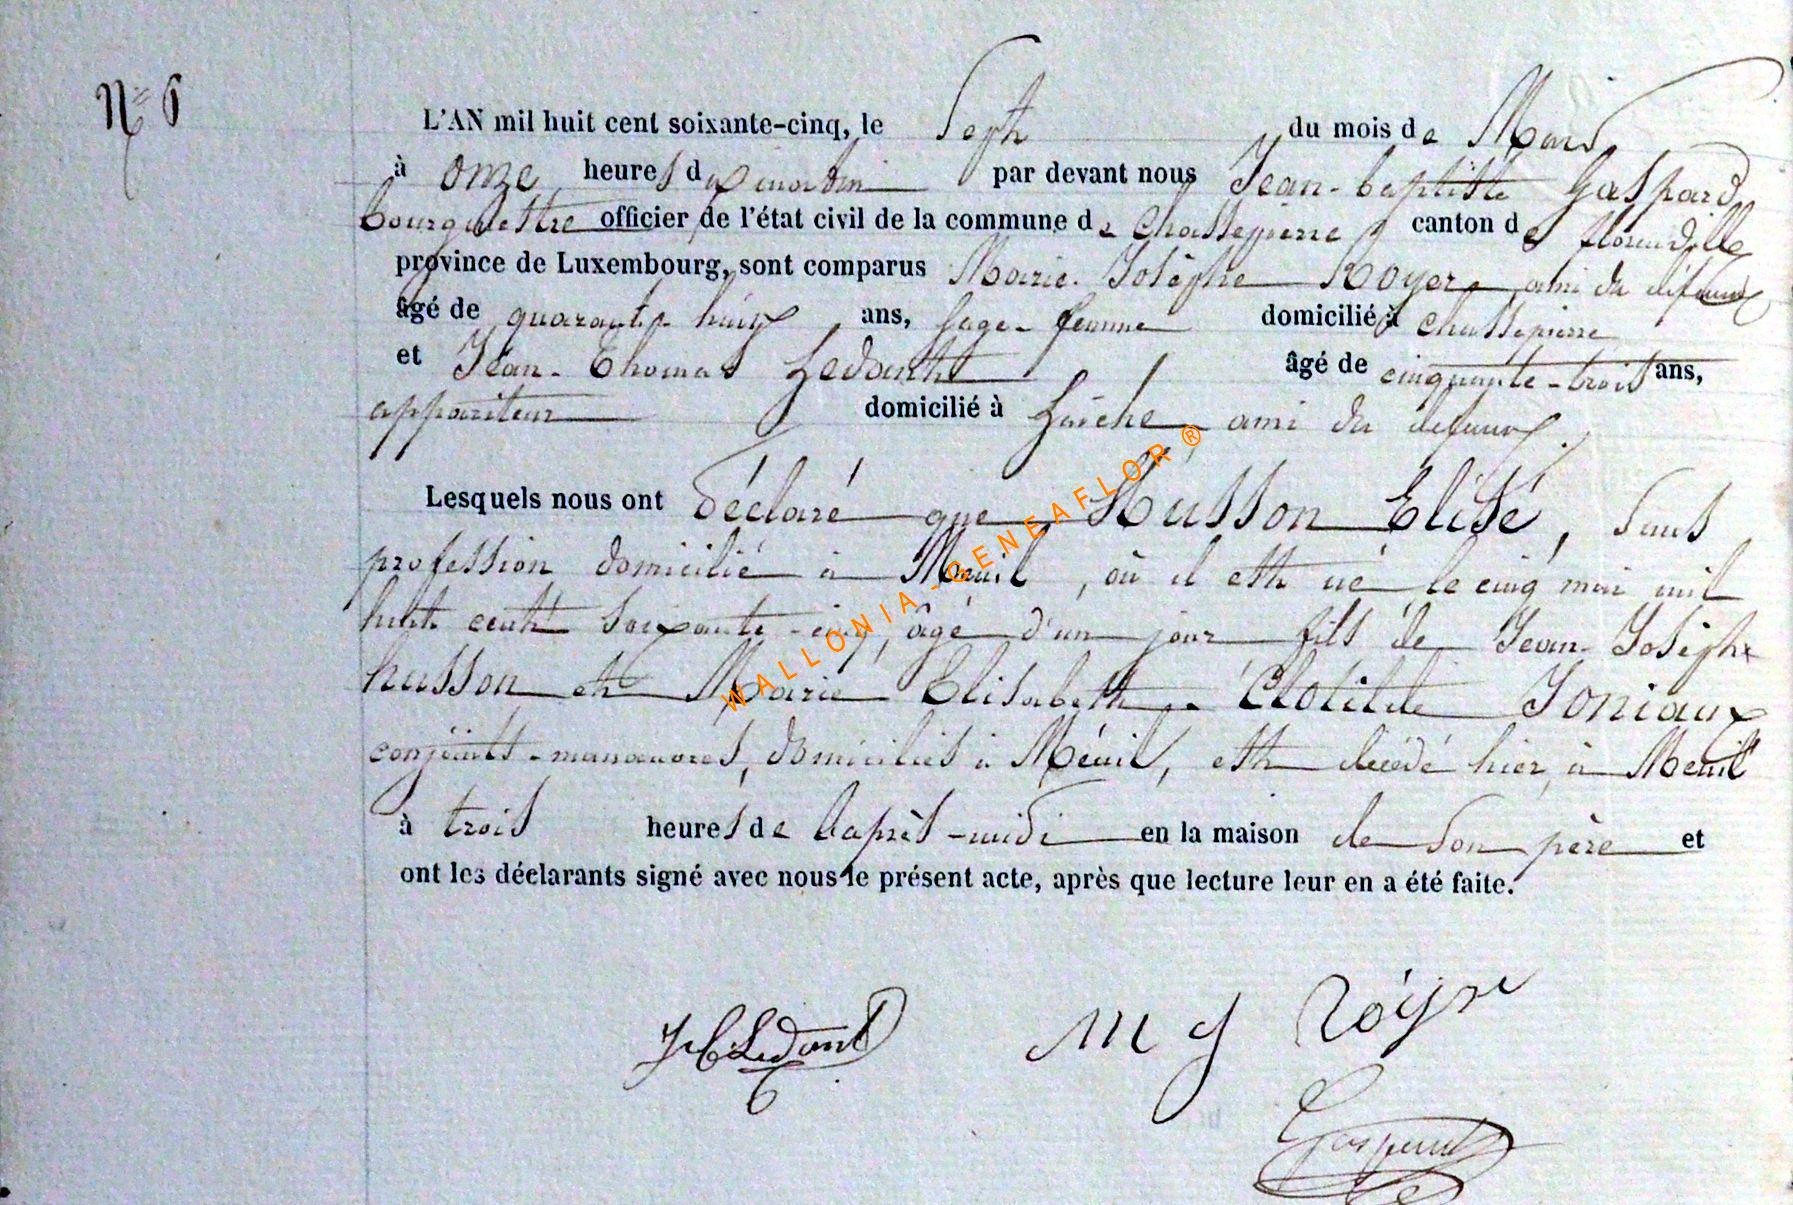 N° 6
L'AN mil huit cent soixante-cinq, le Sept du mois de Mai
à onze heures du matin par devant nous Jean-baptiste Gaspard
bourgmestre officier de l'état civil de la commune de Chassepierre canton de florenville
province de Luxembourg, sont comparus Marie Josèphe Royer, ami du défunt
âgé de quarante huit ans, Sage-femme domicilié à chassepierre
et Jean-Thomas Ledanth âgé de cinquante-trois ans,
appariteur domicilié à Laiche, ami du defunt.
Lesquels nous ont déclaré que Husson Elisé, Sans
profession domicilié à Menil, où il esth né le cinq mai mil
huit cent soixante-cinq, âgé d'un jour fils de Jean-Joseph
husson et Marie Elisabeth-Clotilde Joniaux
conjoints-manœuvres, domiciliés à Ménil, esth décédé hier, à Menil
à trois heures de l'après-midi en la maison de Son père et
ont les déclarants signé avec nous le présent acte, après que lecture leur en a été faite.
J Th Ledant M J Royer
Gaspard
WALLONIA-GENEAFLOR®